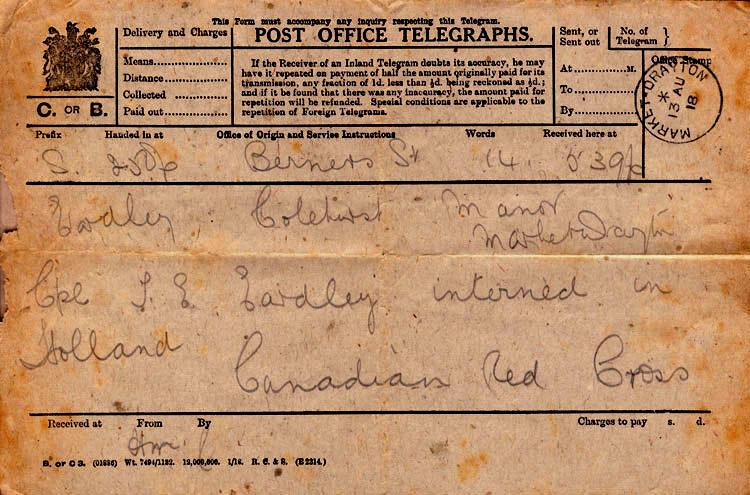 This Form must accompany any inquiry respecting this Telegram.
POST OFFICE TELEGRAPHS.
Delivery and Charges
Means
Distance
Collected
Paid out
C. OR B.
If the Receiver of an Inland Telegram doubts its accuracy, he may
have it repeated on payment of half the amount originally paid for its
transmission, any fraction of 1d. less than ½d. being reckoned as ½d.;
and if it be found that there was any inaccuracy, the amount paid for
repetition will be refunded. Special conditions are applicable to the
repetition of Foreign Telegrams.
Sent, or
Sent out
At M.
To
By
No. of
Telegram }
Office Stamp
MARKET-DRAYTON
* 13 AU 18
Prefix Handed in at Office of Origin and Service Instructions Words Received here at
S. 250p Berners St 14 5 39p
Eardley Colehurst Manor
Market Drayton
Cpl J. E. Eardley interned in
Holland
Canadian Red Cross
Received at From By Charges to pay s. d.
B. or C 3. (01836) Wt. 7494/1122. 12,000,000. 1/18. R. C. & S. (E 2214.)